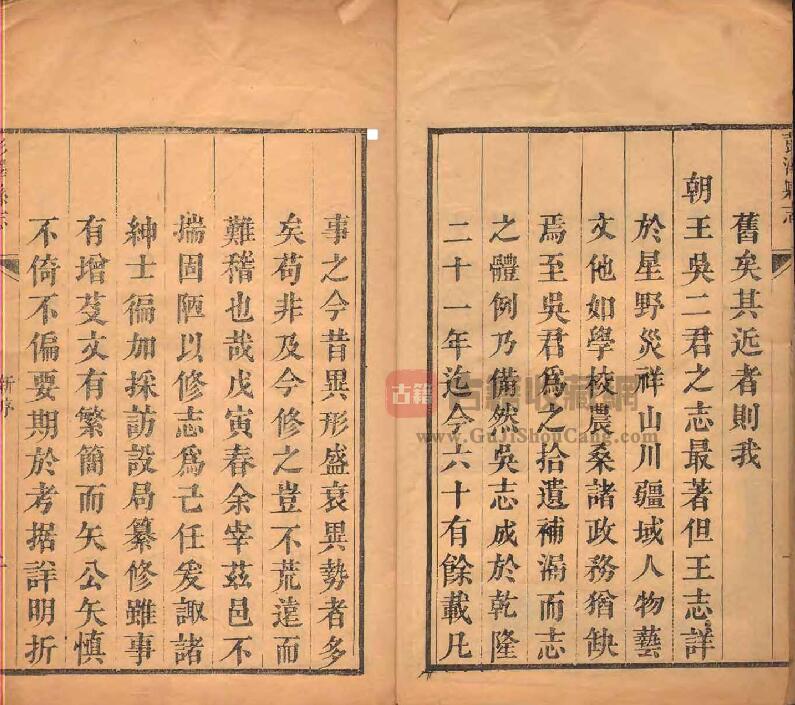 彭澤縣志
舊矣其近者則我
朝王吳二君之志最著但王志詳
於星野災祥山川疆域人物藝
文他如學校農桑諸政務猶缺
焉至吳君爲之拾遺補漏而志
之體例乃備然吳志成於乾隆
二十一年迄今六十有餘載凡
事之今昔異形盛衰異勢者多
矣苟非及今修之豈不荒遠而
難稽也哉戊寅春余宰茲邑不
揣固陋以修志爲己任爰諏諸
紳士徧加採訪設局纂修雖事
有增芟文有繁簡而矢公矢慎
不倚不偏要期於考据詳明折
新序
古籍
古籍收藏網
www.GuJiShouCang.com